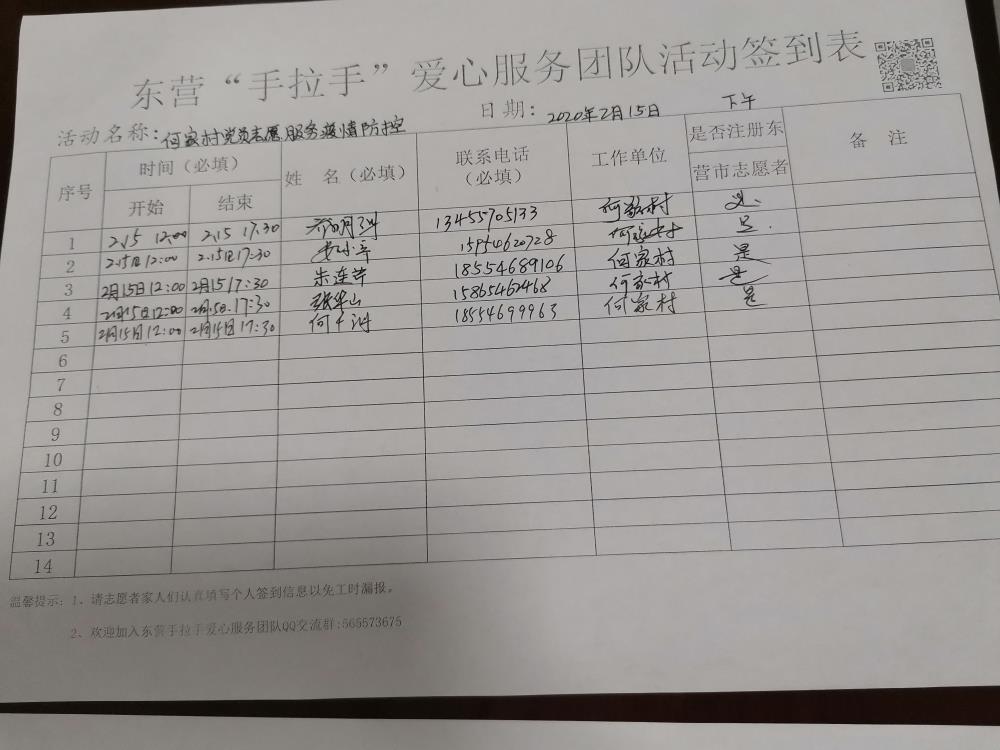 东营“手拉手”爱心服务团队活动签到表
活动名称：何家村党员志愿服务疫情防控 日期：2020年2月15日 下午
序号 时间（必填） 姓 名（必填） 联系电话（必填） 工作单位 是否注册东营市志愿者 备 注
开始 结束
1 2.15 12:00 2.15 17:30 13455705133 何家村 是
2 2.15日12:00 2.15日17:30 何家村 是
3 2月15日12:00 2月15 17:30 朱连芹 18554689106 何家村 是
4 2月15日12:00 2月15日.17:30 张华山 15865462468 何家村 是
5 2月15日12:00 2月15日17:30 18554699963 何家村 是
6
7
8
9
10
11
12
13
14
温馨提示：1、请志愿者家人们认真填写个人签到信息以免工时漏报。
2、欢迎加入东营手拉手爱心服务团队QQ交流群:565573675